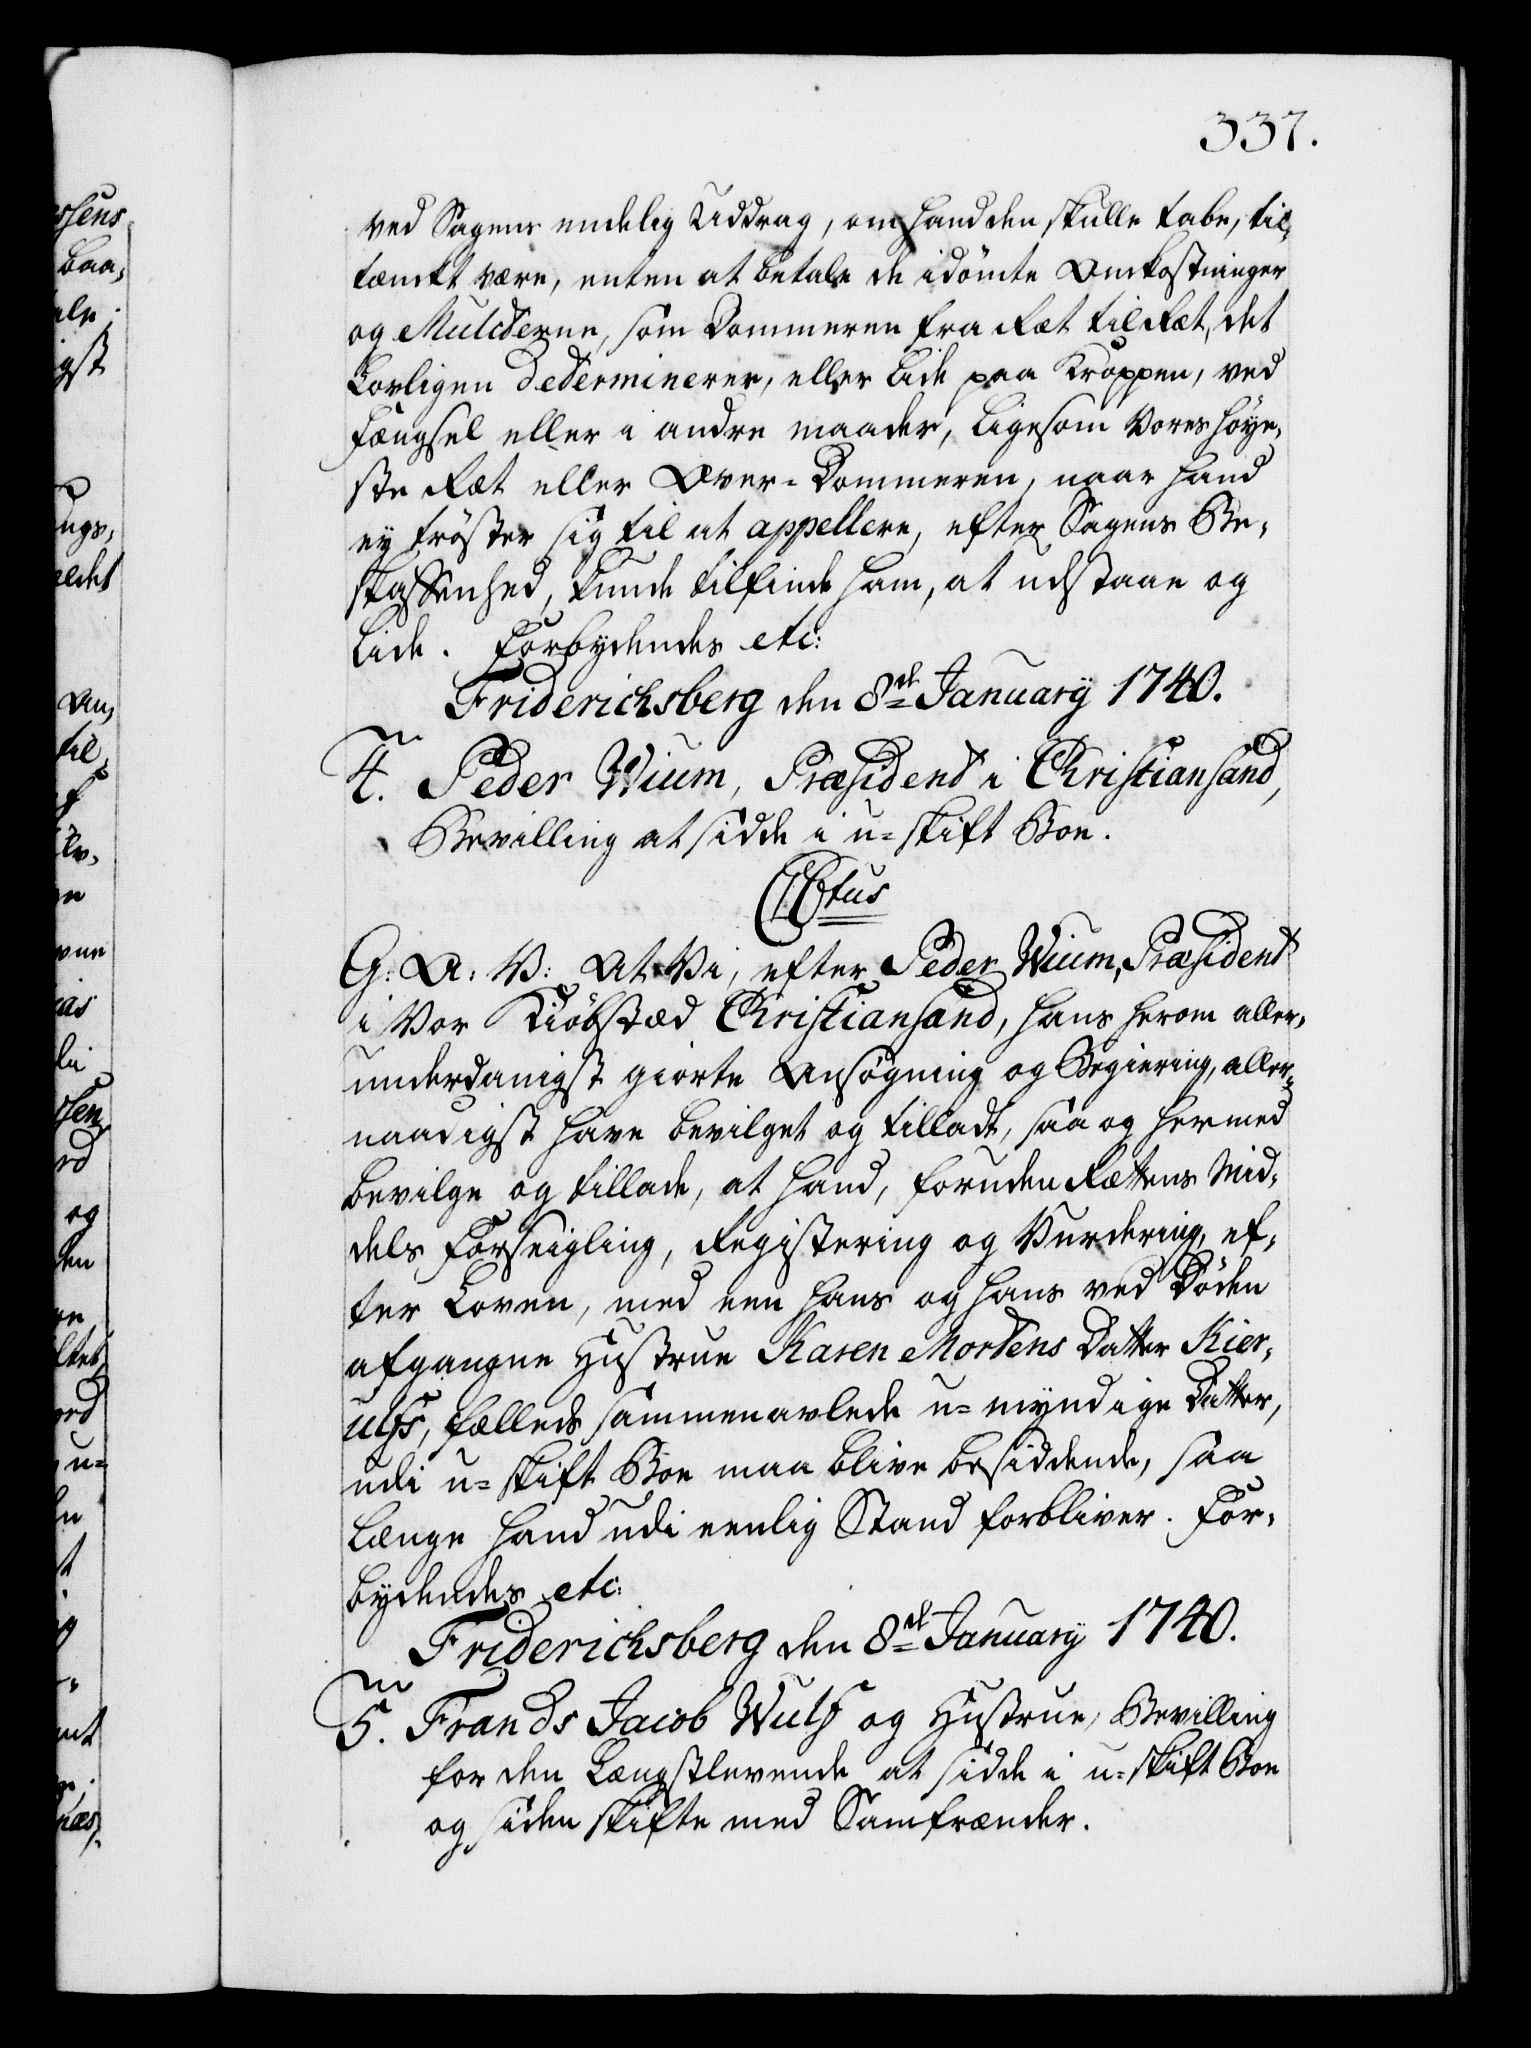 337.
ved Sagens endelig Uddrag, om hand den skulle tabe, til-
tænckt være, enten at betale de idömte Omkostninger
og Mulcterne, som Dommeren fra Ræt til Ræt, det
Lovligen determinerer, eller lide paa Kroppen, ved
Fængsel eller i andre maader, ligesom Vores Höye-
ste Ræt eller Over-Dommeren, naar hand
ey tröster sig til at appellere, efter Sagens Be-
skaffenhed, kunde tilfinde ham, at udstaae og
lide. Forbydendes etc:
Friderichsberg den 8de January 1740.
4. Peder Wium, Præsident i Christiansand,
Bevilling at sidde i u-skift Boe.
C6tus
G: A: V: At Vi, efter Peder Wium, Præsident
i Vor Kiöbstæd Christiansand, hans herom aller-
underdanigst giorte Ansögning og Begiering, aller-
naadigst have bevilget og tilladt, saa og hermed
bevilge og tillade, at hand, foruden Rættens Mid-
dels Forseigling, Registering og Vurdering, ef-
ter Loven, med een hans og hans ved Döden
afgangne Hustrue Karen Mortens Datter Kier-
ulfs, fælleds sammenavlede u-myndige Datter,
udi u-skift Boe maa blive besiddende, saa
længe hand udi eenlig Stand forbliver. For-
bydendes etc:
Friderichsberg den 8de January 1740.
5. Frands Jacob Wulf og Hustrue, Bevilling
for den Længstlevende at sidde i u-skift Boe
og siden skifte med Samfrænder.